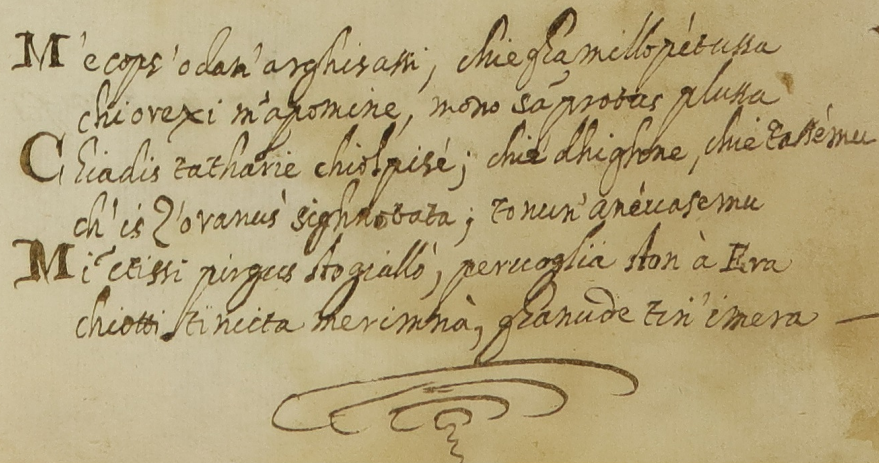 M'ecops' odan' arghisassi, chie gia millopétussa
chi orexi m'apomine, mono sa protas plussa
Chiadis tatharie chiolpisé; chie dhighone, chie tassému
ch' is z'oranus sighnotata; tonun' anéuasemu
Mi ctissi pirgus sto giallò, peruoglia ston à Era
chiotti tincita merimnà, gianude tin' imera